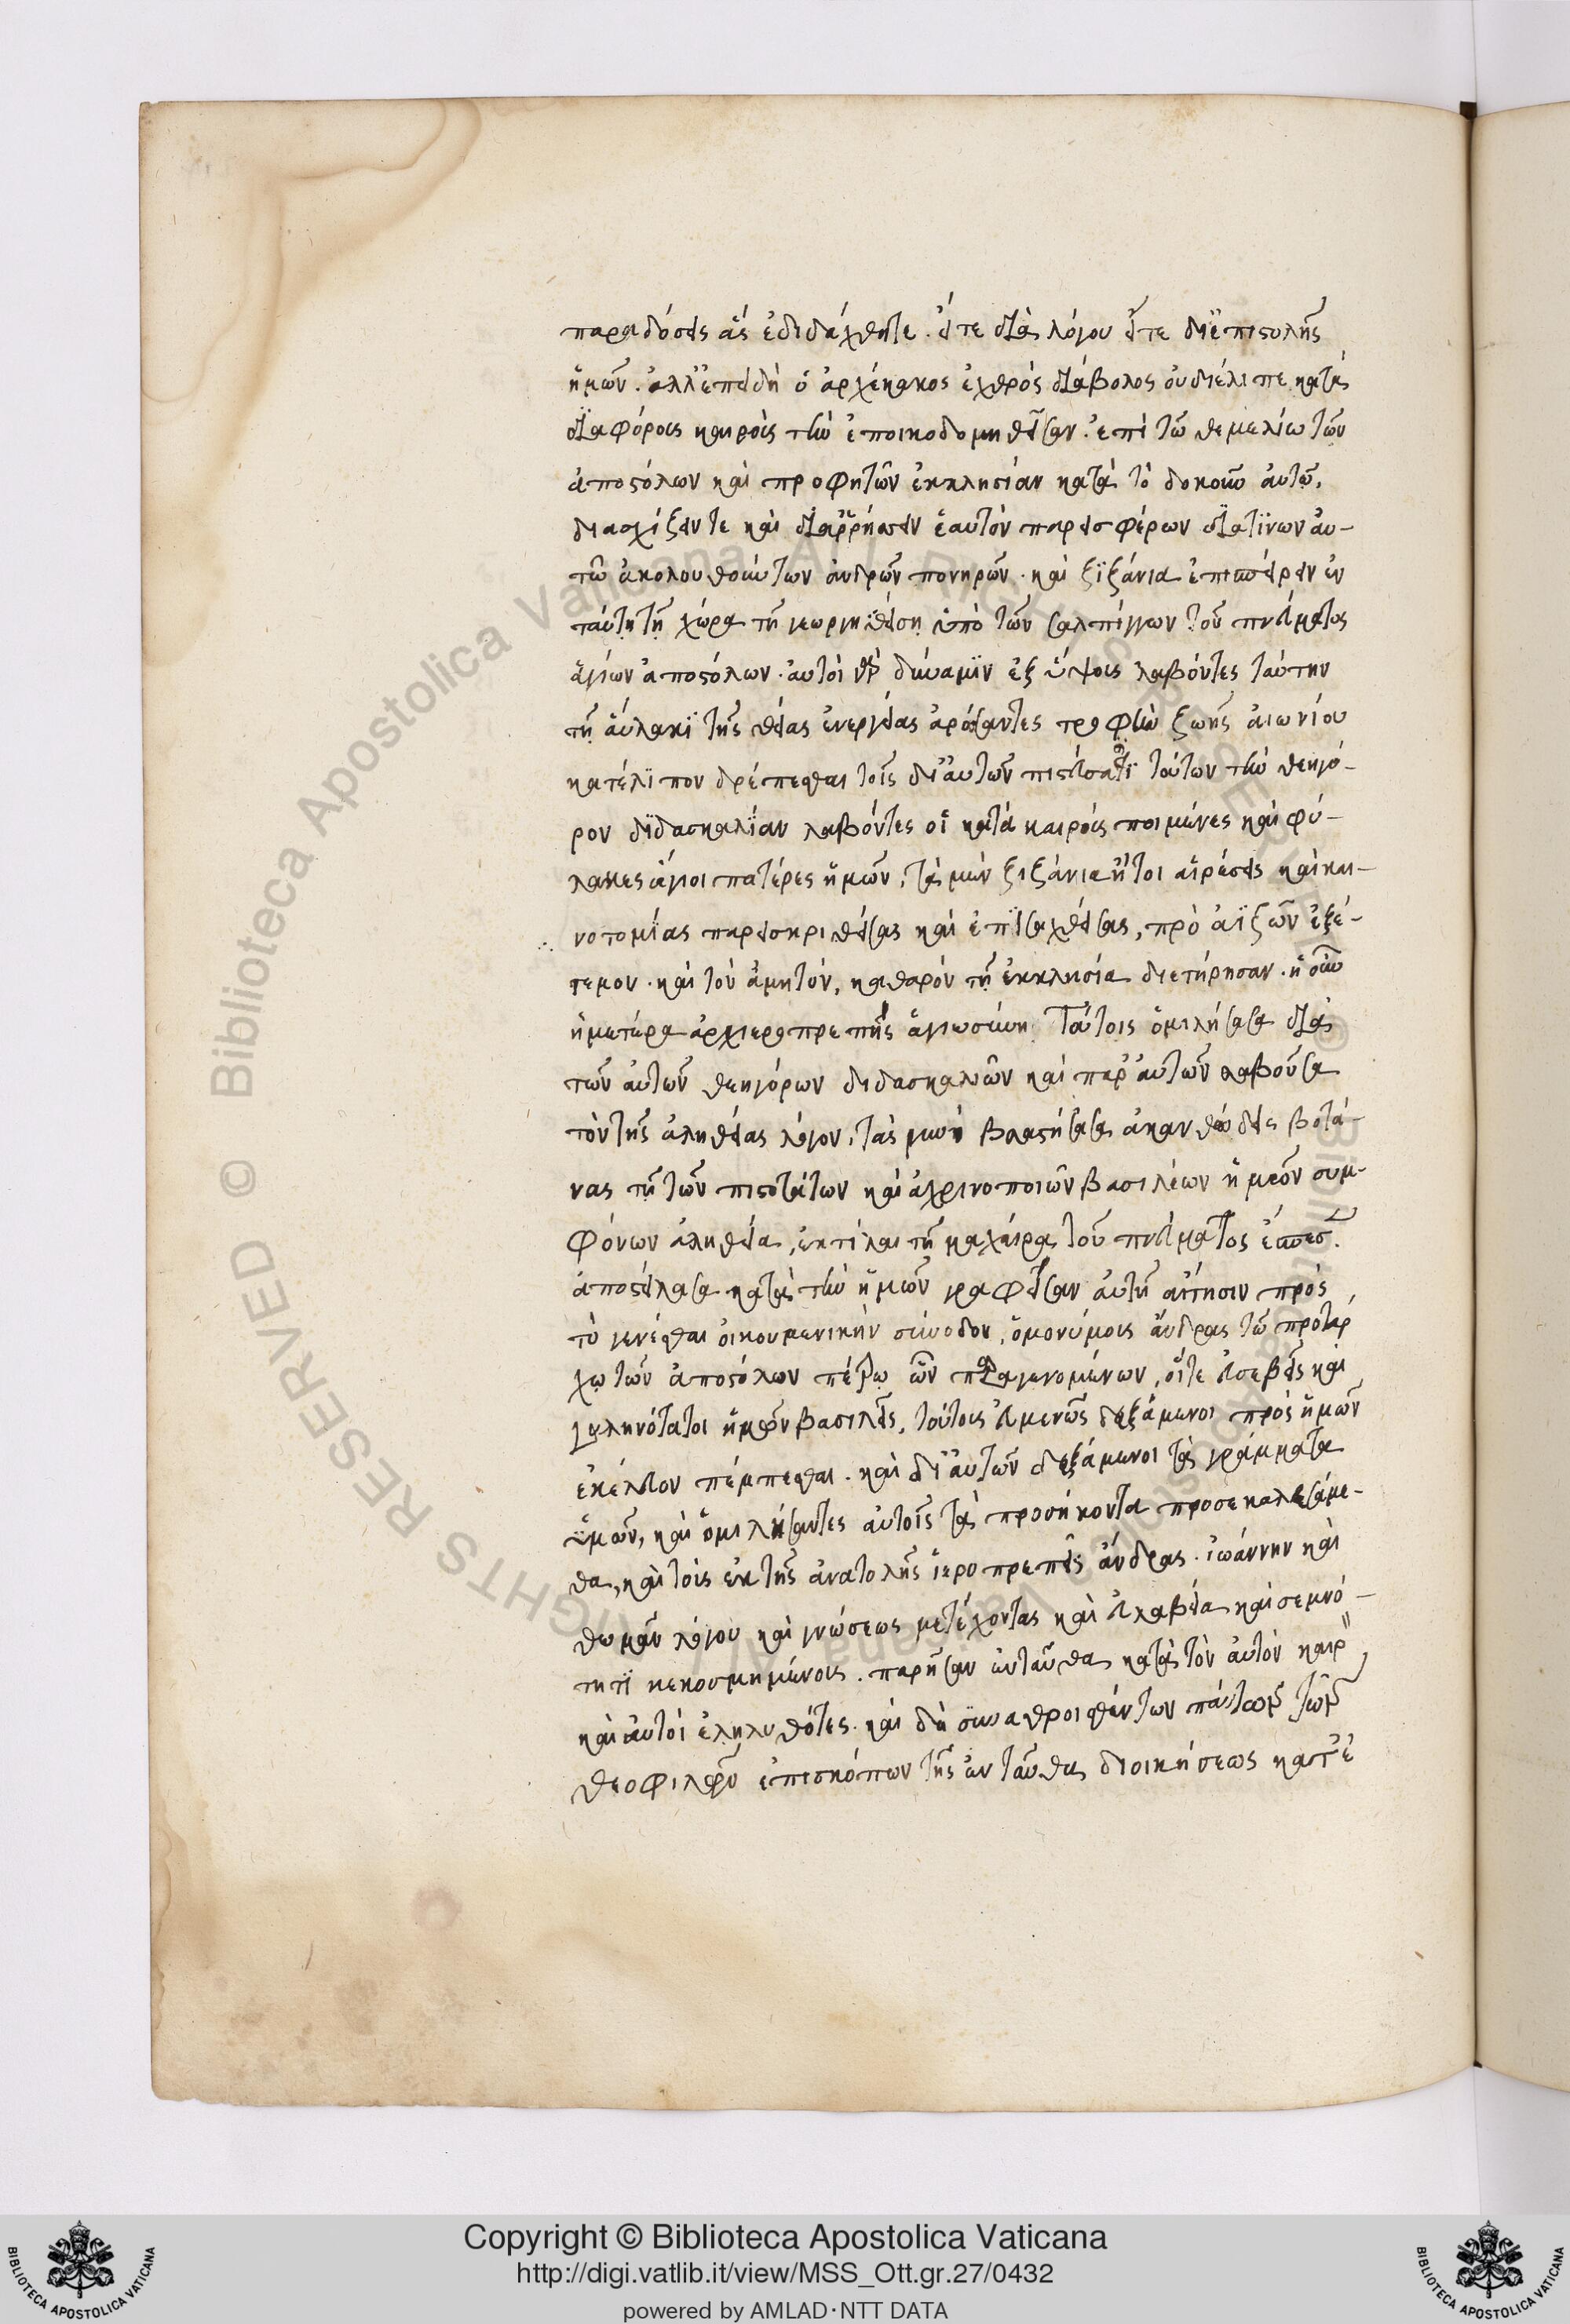 παραδόσεις ἃς ἐδιδάχθητε. εἴτε διὰ λόγου εἴτε δϊ ἐπιστολῆς
ἡμῶν. ἀλλ' ἐπειδὴ ὁ ἀρχέκακος ἐχθρὸς διάβολος οὐ διέλιπε κατὰ
διαφόρους καιροὺς τὴν ἐποικοδομηθεῖσαν. ἐπὶ τῶ θεμελίω τῶν
ἀποστόλων καὶ προφητῶν ἐκκλησίαν κατὰ τὸ δοκοῦν αὐτῶ,
διασχίζειν τε καὶ διαρρήσσειν ἑαυτὸν παρεισφέρων διά τινων αὐ-
τῶ ἀκολουθούντων ἀνδρῶν πονηρῶν. καὶ ζϊζάνια ἐπισπείρειν ἐν
ταύτῃ τῇ χώρα τῇ γεωργηθείσῃ ὑπὸ τῶν σαλπίγγων τοῦ πνεύματος
ἁγίων ἀποστόλων. αὐτοὶ γὰρ δύναμϊν ἐξ ὕψους λαβόντες ταύτην
τῇ αὔλακϊ τῆς θείας ἐνεργείας ἀρόσαντες τροφὴν ζωῆς αἰωνίου
κατέλϊπον δρέπεσθαι τοῖς δι' αὐτῶν πιστεύσασϊ τούτων τὴν θεηγό-
ρον δϊδασκαλίαν λαβόντες οἱ κατὰ καιροὺς ποιμένες καὶ φύ-
λακες ἅγιοι πατέρες ἡμῶν, τὰ μὲν ζιζάνια ἤτοι αἱρέσεις καὶ και-
νοτομίας παρεισκριθείσας καὶ ἐπϊσαχθείσας, πρὸ ἀϊζῶν ἐξέ-
τεμον. καὶ τὸν ἀμητόν, καθαρὸν τῇ ἐκκλησία διετήρησαν. ἡ οὖν
ἡμετέρα ἀρχιεροπρεπὴς ἁγιωσύνη τούτοις ὁμιλήσασα διὰ
τῶν αὐτῶν θεηγόρων διδασκαλιῶν καὶ παρ' αὐτῶν λαβοῦσα
τὸν τῆς ἀληθείας λόγον, τὰς μὲν βλαστήσασας ἀκανθώδεις βοτά-
νας τῇ τῶν πιστοτάτων καὶ εἰρηνοποιῶν βασιλέων ἡμῶν συμ-
φόνων ἀληθεία, ἐκτίλαι τῇ μαχαίρα τοῦ πνεύματος ἔσπευσε.
ἀποστείλασα κατὰ τὴν ἡμῶν γραφεῖσαν αὐτῇ αἴτησιν πρὸς
τὸ γενέσθαι οἰκουμενικὴν σύνοδον, ὁμονύμους ἄνδρας τῶ προτάρ
χῳ τῶν ἀποστόλων πέτρῳ ὧν παραγενομένων, οἵτε εὐσεβεῖς καὶ
γαληνότατοι ἡμῶν βασιλεῖς, τούτους εὐμενῶς δεξάμενοι πρὸς ἡμῶν
ἐκέλευον πέμπεσθαι. καὶ δι' αὐτῶν δεξάμενοι τὰ γράμματα
ὑμῶν, καὶ ὁμιλήσαντες αὐτοῖς τὰ προσήκοντα προσεκαλεσάμε-
θα, καὶ τοὺς ἐκ τῆς ἀνατολῆς ἱεροπρεπεῖς ἄνδρας. ἰωάννην καὶ
θωμᾶν λόγου καὶ γνώσεως μετέχοντας καὶ εὐλαβεία καὶ σεμνό-
τητϊ κεκοσμημένους. παρῆσαν ἐνταῦθα κατὰ τὸν αὐτὸν καιρὸν
καὶ αὐτοὶ ἐληλυθότες. καὶ δὴ συναθροισθέντων πάντων τῶν
θεοφιλῶν ἐπισκόπων τῆς ἐνταῦθα διοικήσεως
Copyright © Biblioteca Apostolica Vaticana
http://digi.vatlib.it/view/MSS_Ott.gr.27/0432
powered by AMLAD·NTT DATA